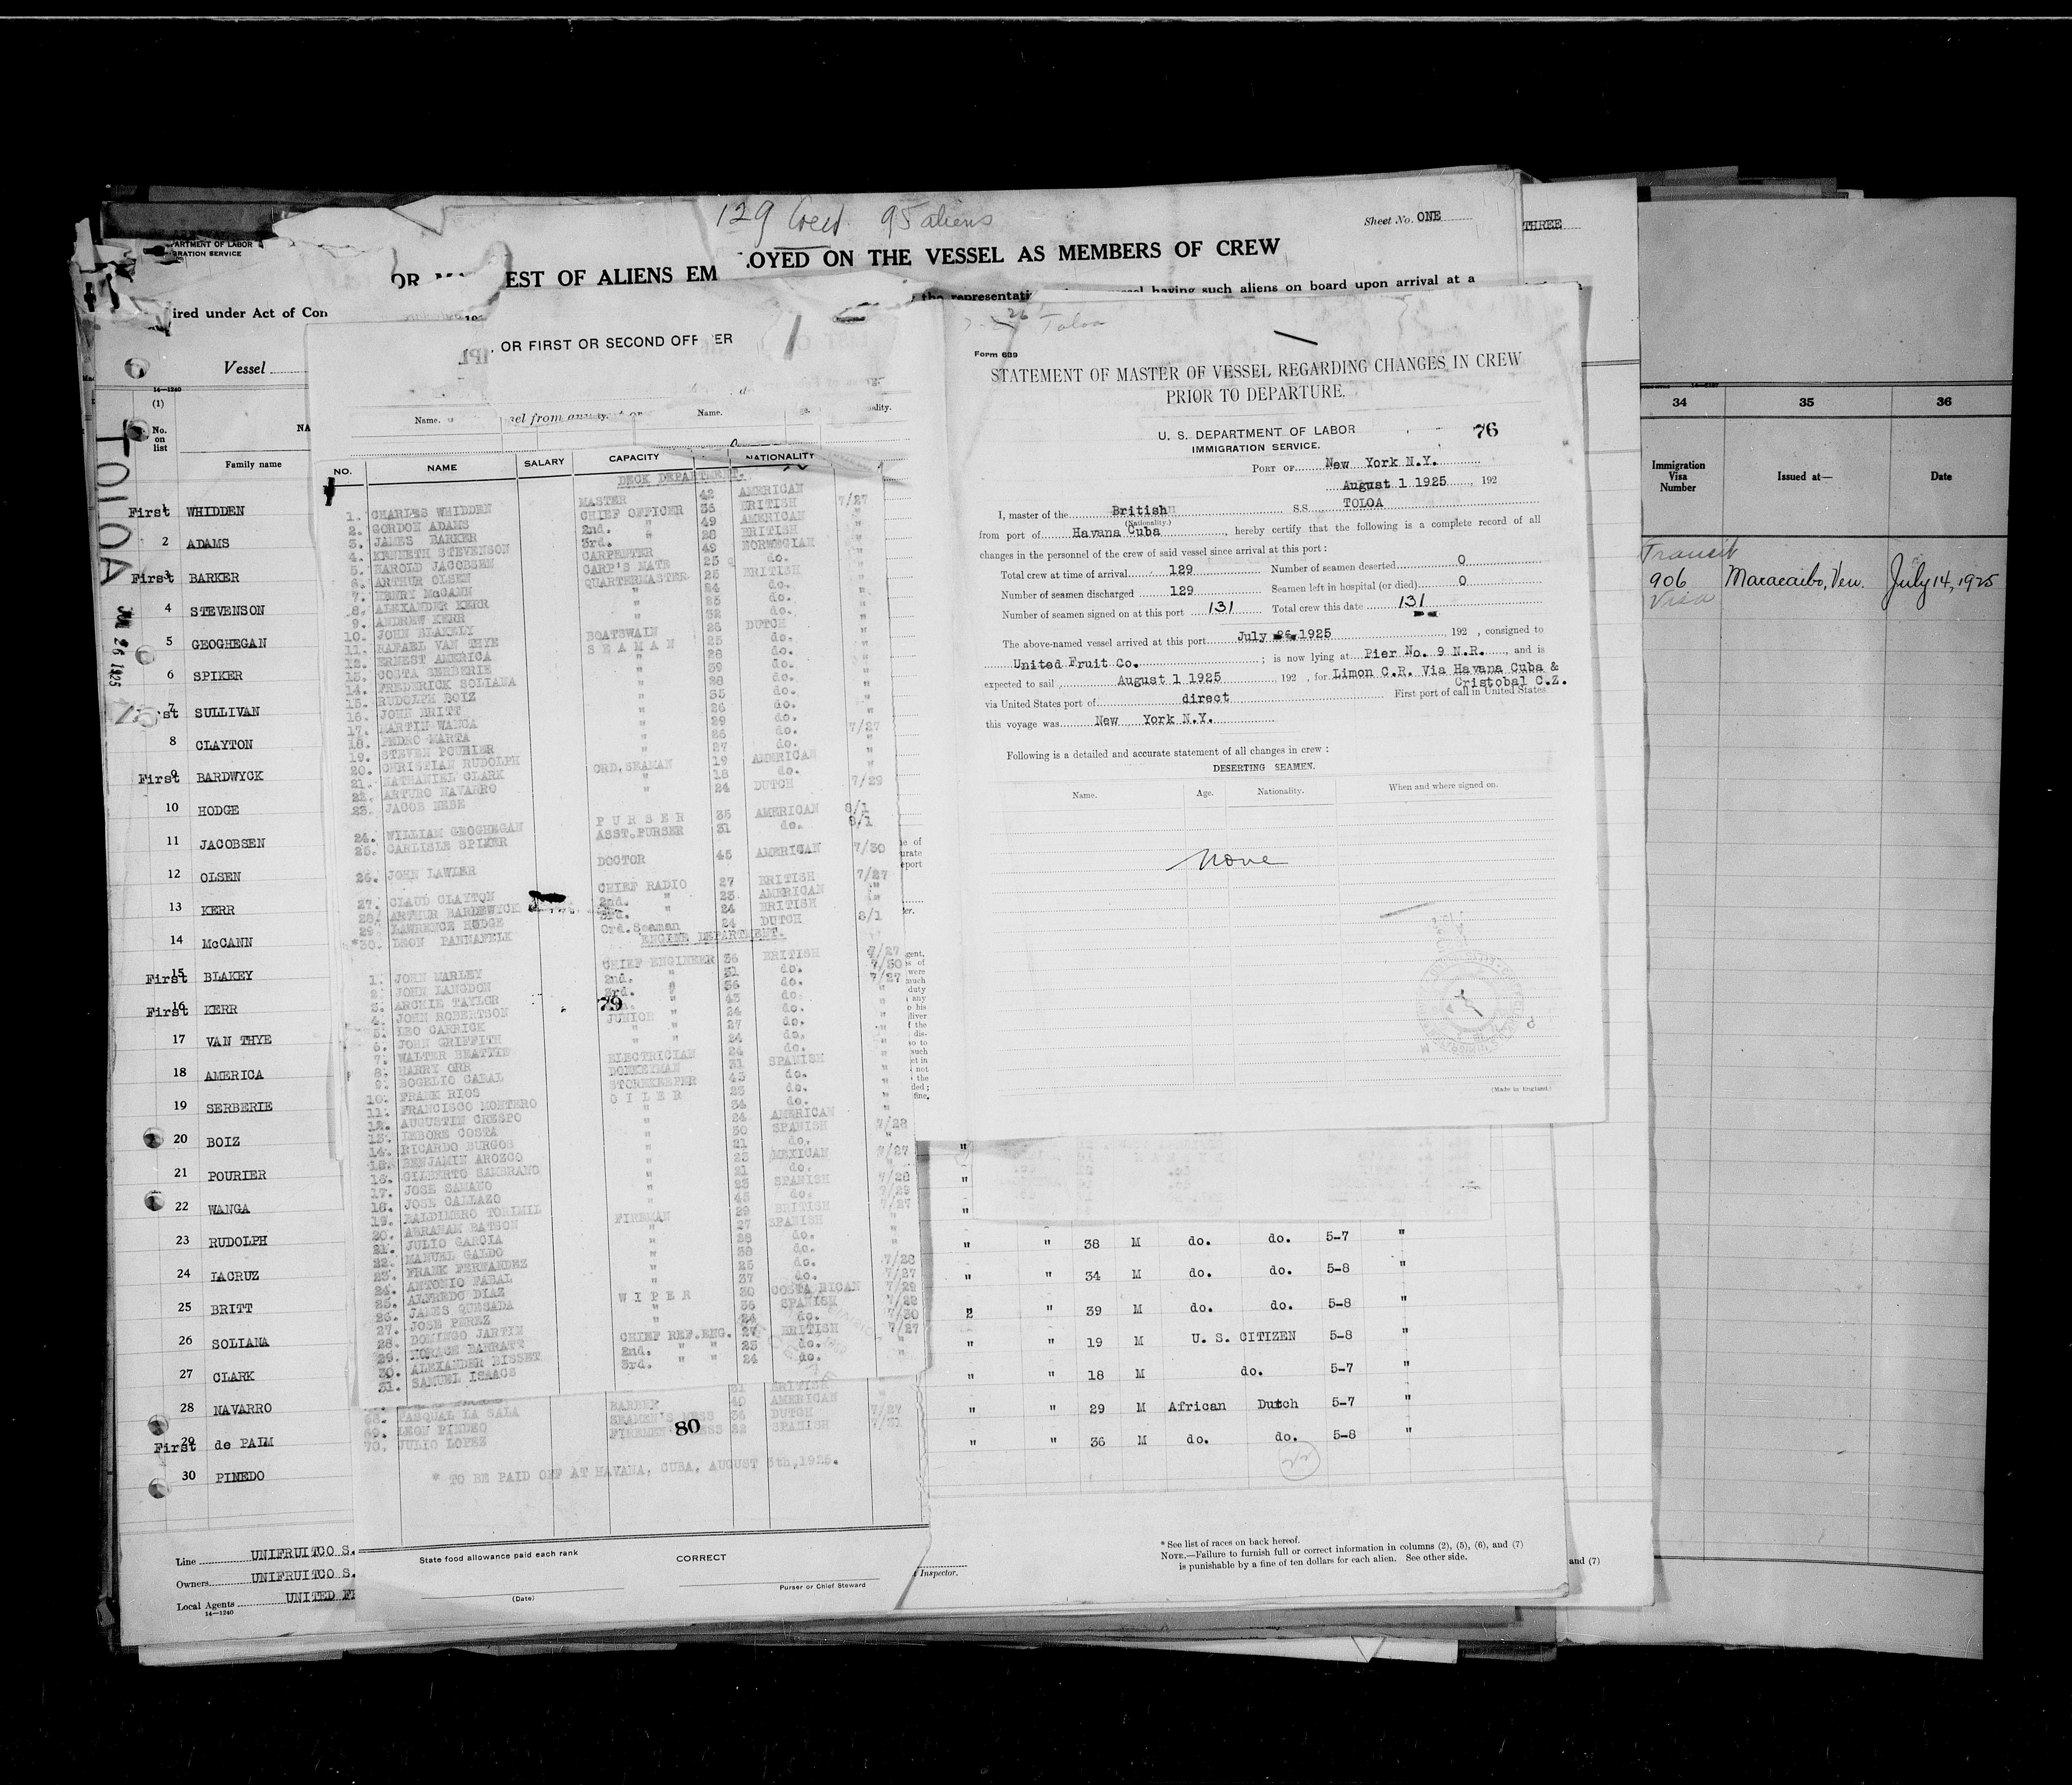 129 Crew 95 aliens
Sheet No. ONE
THREE
EST OF ALIENS EM
LOYED ON THE VESSEL AS MEMBERS OF CREW
PARTMENT OF LABOR
GRATION SERVICE
ired under Act of Con
the representati
having such aliens on board upon arrival at a
Vessel
14—1240
(1)
No. on list
Family name
TOLOA
First WHIDDEN
2 ADAMS
First BARKER
4 STEVENSON
5 GEOGHEGAN
6 SPIKER
7 SULLIVAN
8 CLAYTON
First 9 BARDWYCK
10 HODGE
11 JACOBSEN
12 OLSEN
13 KERR
14 McCANN
First 15 BLAKEY
First 16 KERR
17 VAN THYE
18 AMERICA
19 SERBERIE
20 BOIZ
21 POURIER
22 WANGA
23 RUDOLPH
24 LACRUZ
25 BRITT
26 SOLIANA
27 CLARK
28 NAVARRO
First 29 de PALM
30 PINEDO
Line UNIFRUITCO S.
Owners UNIFRUITCO S.
Local Agents UNITED F
14—1240
, OR FIRST OR SECOND OFF ER
Name.
sel from any
Name.
NO. NAME SALARY CAPACITY NATIONALITY
DECK DEPARTMENT.
1. CHARLES WHIDDEN MASTER 42 AMERICAN 7/27
2. GORDON ADAMS CHIEF OFFICER 36 BRITISH "
3. JAMES BARKER 2nd. " 49 AMERICAN "
4. KENNETH STEVENSON 3rd. " 28 BRITISH "
5. HAROLD JACOBSEN CARPENTER 49 NORWEGIAN "
6. ARTHUR OLSEN CARP'S MATE 25 do. "
7. HENRY McCANN QUARTERMASTER 25 BRITISH "
8. ALEXANDER KERR " 24 do. "
9. ANDREW KERR " 25 do. "
10. JOHN BLAKELY " 32 do. "
11. RAFAEL VAN THYE BOATSWAIN 26 DUTCH "
12. ERNEST AMERICA SEAMAN 25 do. "
13. COSTA SERBERIE " 28 do. "
14. FREDERICK SOLIANA " 39 do. "
15. RUDOLPH BOIZ " 28 do. "
16. JOHN BRITT " 35 do. "
17. MARTIN WANGA " 26 do. "
18. PEDRO MARTA " 29 do. 7/27
19. STEVEN POURIER " 26 do. "
20. CHRISTIAN RUDOLPH " 27 do. "
21. NATHANIEL CLARK ORD.SEAMAN 19 AMERICAN "
22. ARTURO NAVARRO " 18 do. "
23. JACOB NESE " 24 DUTCH 7/29
24. WILLIAM GEOGHEGAN PURSER 35 AMERICAN 8/1
25. CARLISLE SPIKER ASST.PURSER 31 do. 8/1
26. JOHN LAWLER DOCTOR 45 AMERICAN 7/30
27. CLAUD CLAYTON CHIEF RADIO 27 BRITISH 7/27
28. ARTHUR BARDEWYCK 2nd. " 23 AMERICAN "
29. LAWRENCE HODGE 3rd. " 24 BRITISH "
*30. LEON PANNAFELK Ord.Seaman 24 DUTCH 8/1
ENGINE DEPARTMENT.
1. JOHN MARLEY CHIEF ENGINEER 36 BRITISH 7/27
2. JOHN LANGDON 2nd. " 31 do. 7/30
3. ARCHIE TAYLOR 3rd. " 36 do. 7/27
4. JOHN ROBERTSON " 43 do. "
79
5. LEO CARRICK JUNIOR " 24 do. "
6. JOHN GRIFFITH " " 27 do. "
7. WALTER BEATTIE " " 24 do. "
8. HARRY ORR ELECTRICIAN 24 do. "
9. ROGELIO CABAL DONKEYMAN 31 SPANISH "
10. FRANK RIOS STOREKEEPER 43 do. "
11. FRANCISCO MONTERO OILER 23 do. "
12. AUGUSTIN CRESPO " 34 do. "
13. LEBORE COSTA " 24 AMERICAN "
14. RICARDO BURGOS " 30 SPANISH 7/28
15. BENJAMIN AROZCO " 21 do. "
16. GILBERTO SAMBRANO " 23 MEXICAN 7/27
17. JOSE SAMANO " 21 do. "
18. JOSE CALLAZO " 23 SPANISH 7/28
19. BALDIMERO TORIMIL " 45 do. 7/29
20. ABRAHAM BATSON FIREMAN 29 BRITISH 7/27
21. JULIO GARCIA " 27 SPANISH "
22. MANUEL GALDO " 28 do. "
23. FRANK FERNANDEZ " 38 do. "
24. ANTONIO FABAL " 25 do. 7/28
25. ALFREDO DIAZ " 37 do. 7/27
26. JAMES QUESADA WIPER 30 COSTA RICAN 7/29
27. JOSE PEREZ " 36 SPANISH 7/28
28. DOMINGO JARTIN " 24 do. 7/30
29. HORACE BARRATT CHIEF REF.ENG. 27 BRITISH 7/27
30. ALEXANDER BISSET 2nd. " " 23 do. "
31. SAMUEL ISAACS 3rd. " " 24 do. "
31 BRITISH
68. PASQUAL LA SALA BARBER 49 AMERICAN
69. LEON PINEDO SEAMEN'S MESS 36 DUTCH 7/27
70. JULIO LOPEZ FIREMEN MESS 22 SPANISH 7/31
80
* TO BE PAID OFF AT HAVANA, CUBA, AUGUST 5th,1925.
State food allowance paid each rank
CORRECT
(Date)
Purser or Chief Steward
26 Toloa
Form 689
STATEMENT OF MASTER OF VESSEL REGARDING CHANGES IN CREW
PRIOR TO DEPARTURE.
U. S. DEPARTMENT OF LABOR
76
IMMIGRATION SERVICE.
PORT OF New York N.Y.
August 1 1925, 192
I, master of the British S.S. TOLOA
(Nationality.)
from port of Havana Cuba, hereby certify that the following is a complete record of all
changes in the personnel of the crew of said vessel since arrival at this port:
Total crew at time of arrival 129 Number of seamen deserted 0
Number of seamen discharged 129 Seamen left in hospital (or died) 0
Number of seamen signed on at this port 131 Total crew this date 131
The above-named vessel arrived at this port July 26 1925, 192 , consigned to
United Fruit Co. ; is now lying at Pier No. 9 N.R., and is
expected to sail August 1 1925, 192 , for Limon C.R. Via Havana Cuba &
Cristobal C.Z.
via United States port of direct First port of call in United States
this voyage was New York N.Y.
Following is a detailed and accurate statement of all changes in crew:
DESERTING SEAMEN.
Name. Age. Nationality. When and where signed on.
None
(Made in England.)
" " 38 M do. do. 5-7 "
" " 34 M do. do. 5-8 "
2 " 39 M do. do. 5-8 "
" " 19 M U. S. CITIZEN 5-8 "
" " 18 M do. 5-7 "
" " 29 M African Dutch 5-7 "
" " 36 M do. do. 5-8 "
* See list of races on back hereof.
NOTE.—Failure to furnish full or correct information in columns (2), (5), (6), and (7)
is punishable by a fine of ten dollars for each alien. See other side.
Inspector.
and (7)
34 35 36
Immigration Visa Number
Issued at—
Date
Transit
906 Maracaibo, Ven. July 14, 1925
Visa